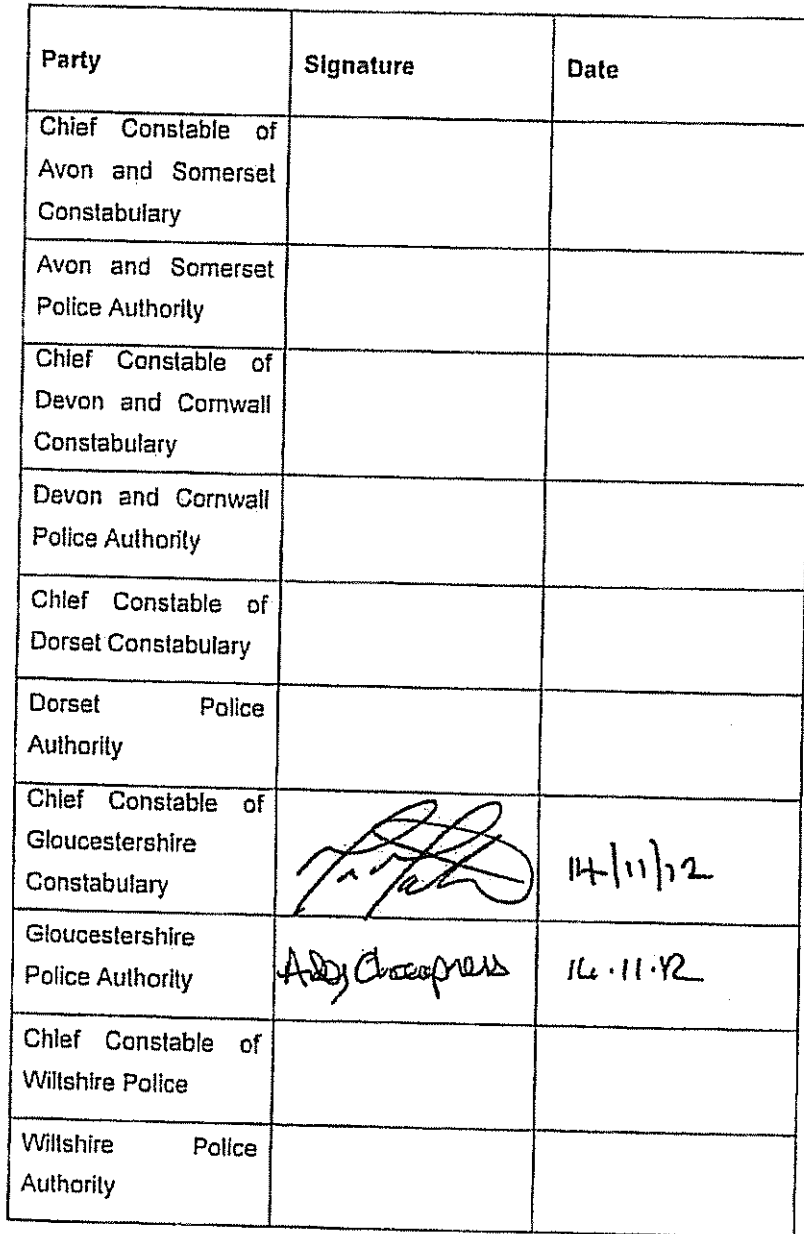 Party Signature Date
Chief Constable of
Avon and Somerset
Constabulary
Avon and Somerset
Police Authority
Chief Constable of
Devon and Cornwall
Constabulary
Devon and Cornwall
Police Authority
Chief Constable of
Dorset Constabulary
Dorset Police
Authority
Chief Constable of
Gloucestershire
Constabulary
14/11/12
Gloucestershire
Police Authority
14.11.12
Chief Constable of
Wiltshire Police
Wiltshire Police
Authority